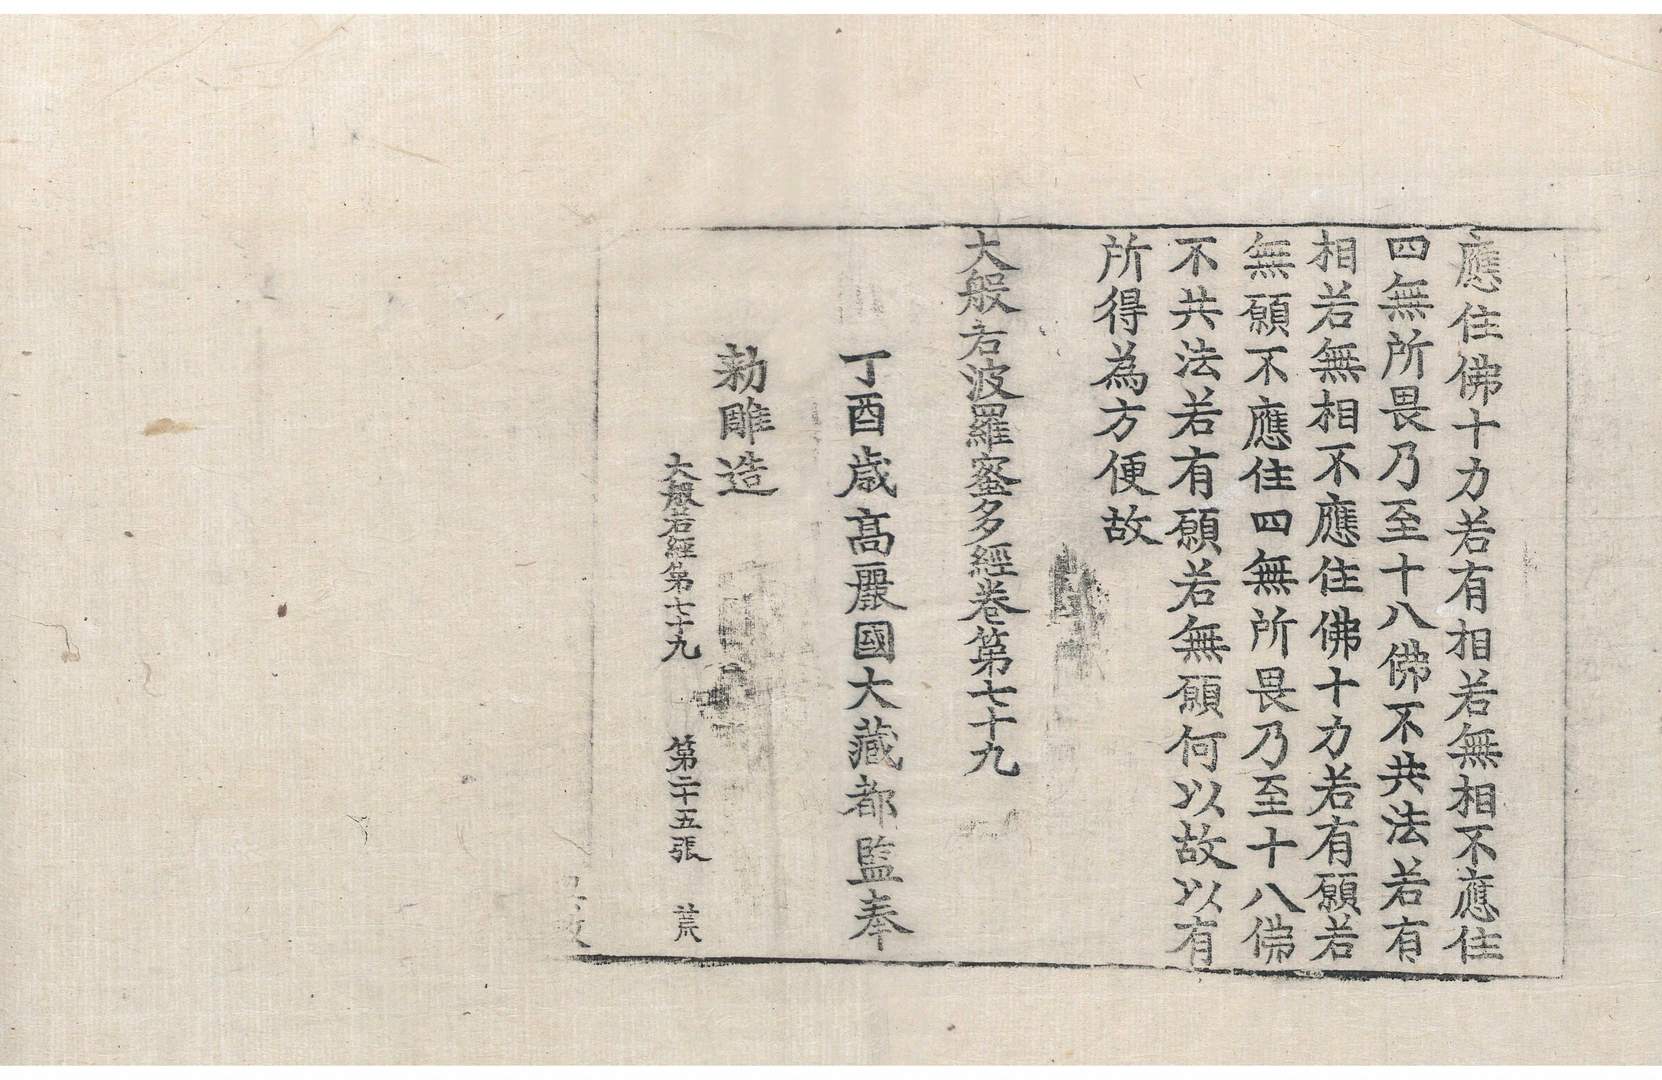 應住佛十力若有相若無相不應住
四無所畏乃至十八佛不共法若有
相若無相不應住佛十力若有願若
無願不應住四無所畏乃至十八佛
不共法若有願若無願何以故以有
所得為方便故
大般若波羅蜜多經卷第七十九
丁酉歳高麗國大藏都監奉
勑雕造
大般若經第七十九 第二十五張 荒